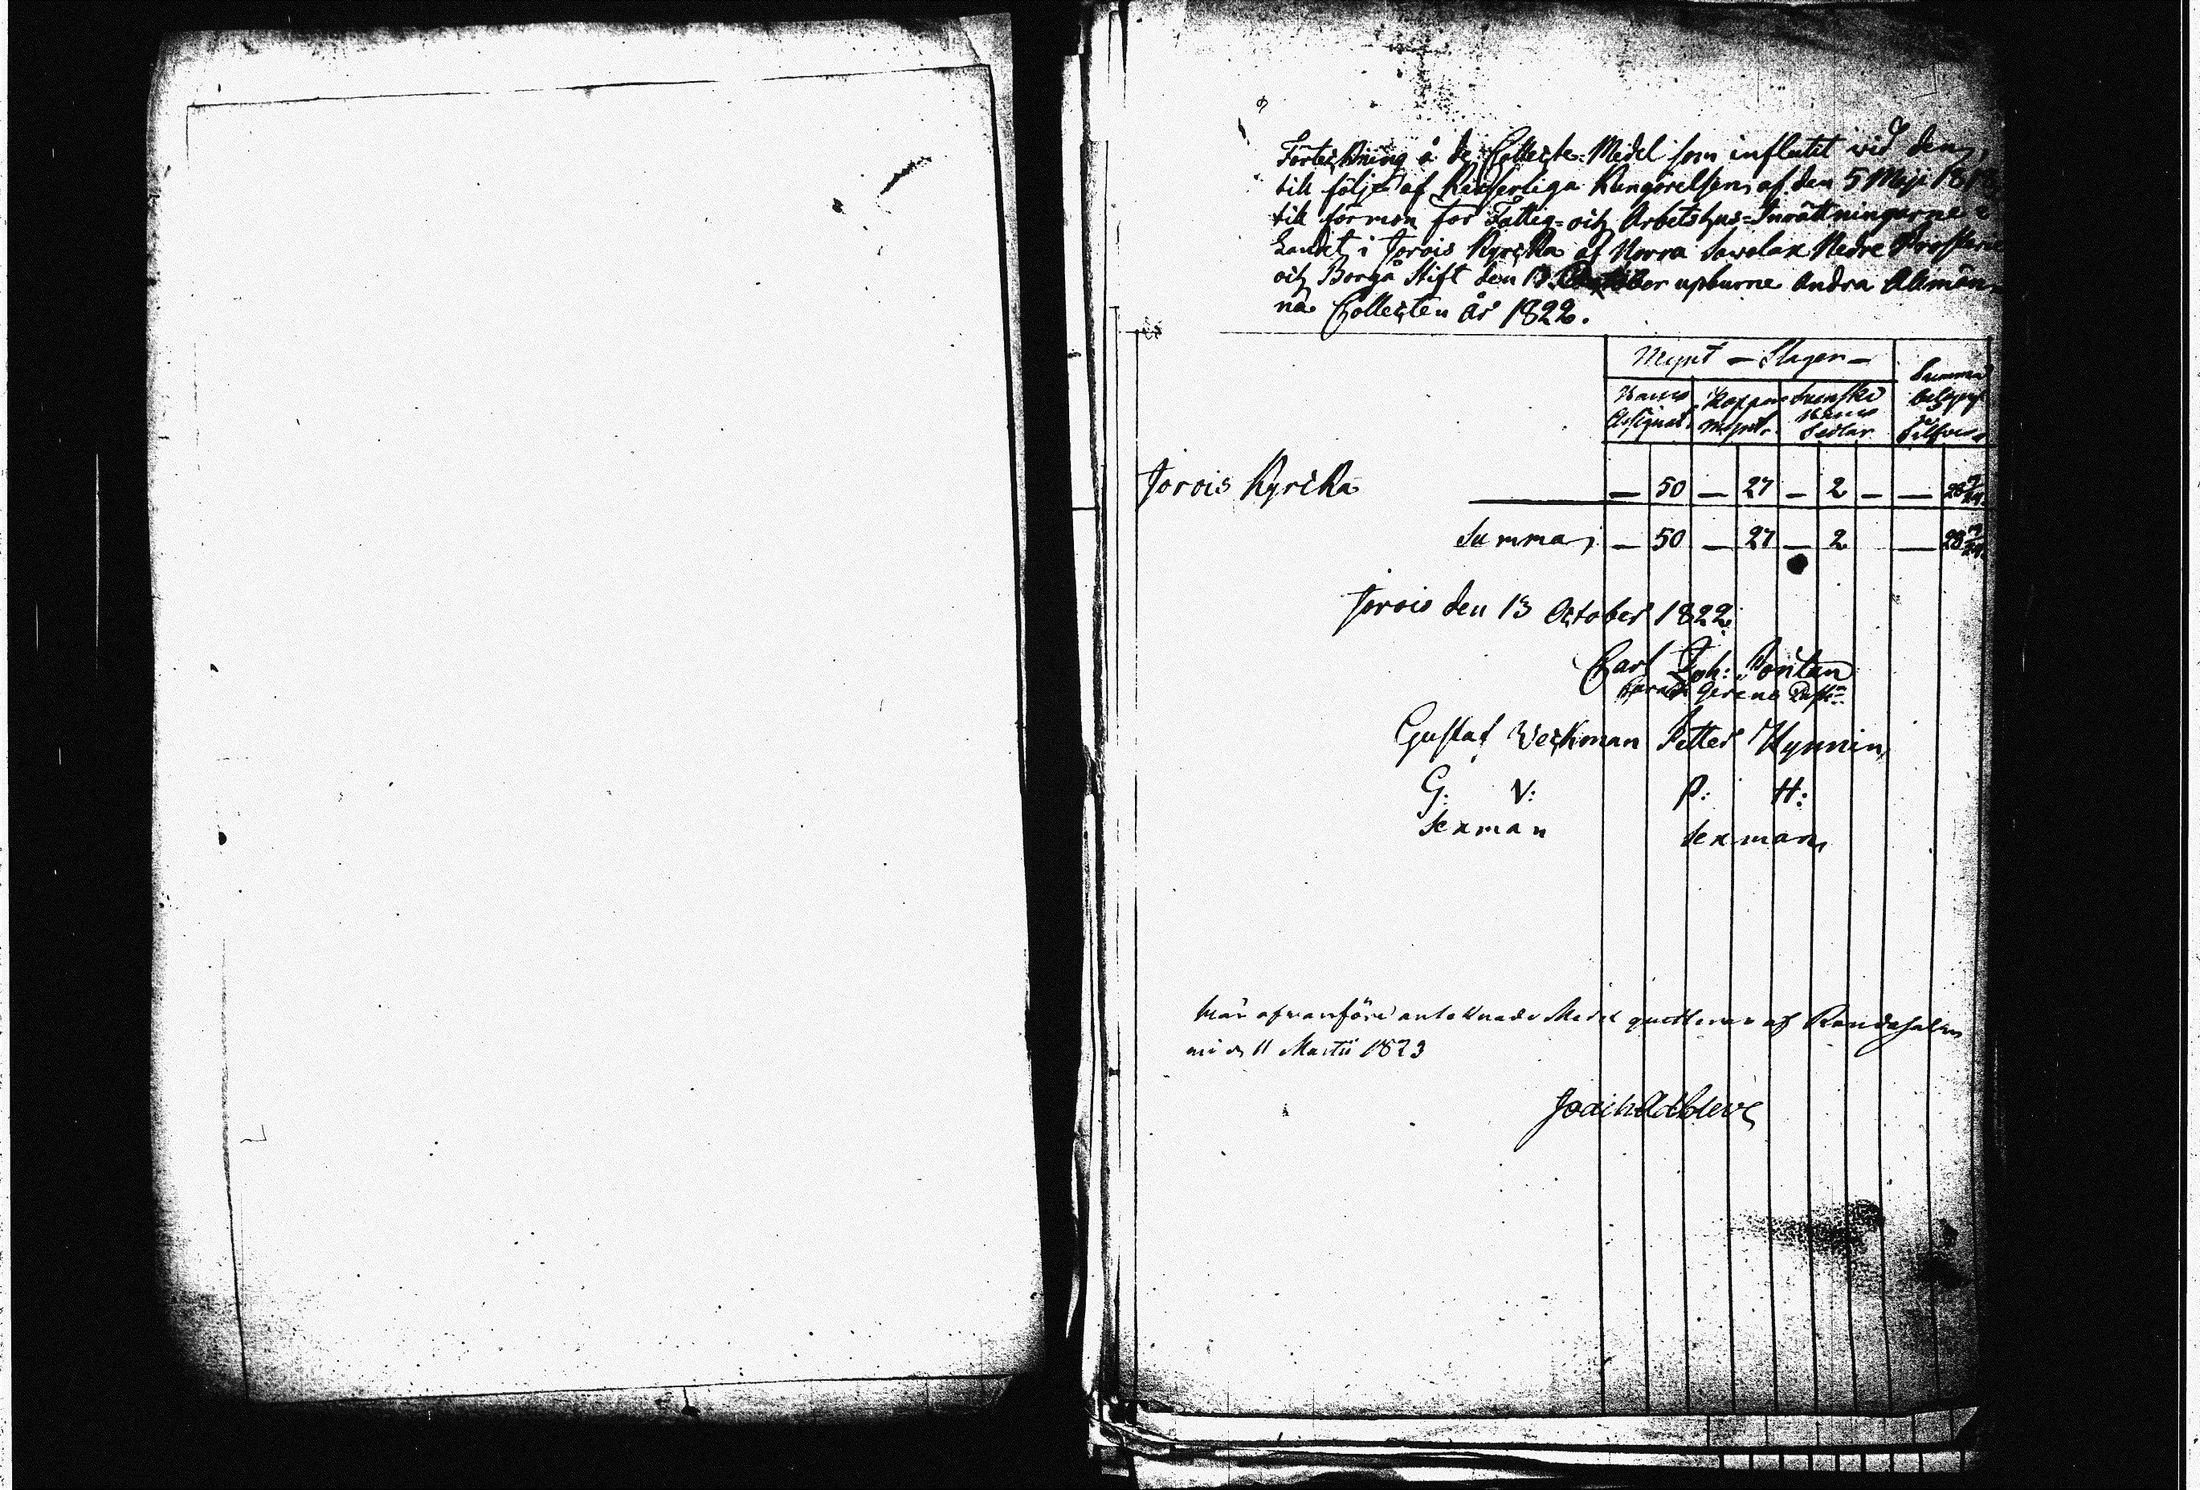 Förteckning å de Collecte-Medel som influtit wid den,
till följe af Keiserliga Kungörelsen af den 5 Maji 1818
till förmon för Fattig- och Arbetshus-Inrättningarne i
Landet i Jorois Kyrcka af Norra Sawolax Nedre Prosteri
och Borgå Stift den 13 October upburne Andra Allmän-
na Collecten År 1822.
Mynt - Slagen -
Summa
Banco Koppar Svenska belopp
Assignat. Mynt. Banco
Sedlar Silfver
Jorois Kyrcka — 50 — 27 — 2 — — 28
Summa, — 50 — 27 — 2 — 28
Jorois den 13 October 1822.
Carl Joh: Pontan
Gustaf Weckman Petter Hynnin,
G: V: P: H:
Sexman Sexman,
afvanföre antecknade Medel af Randasalmi
11 Martii 1823